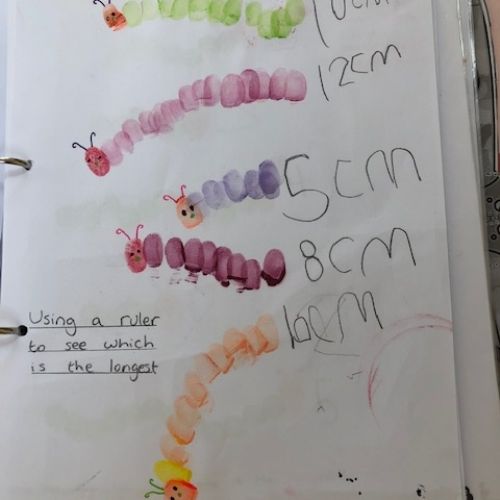 10cm
12cm
5cm
8cm
10cm
Using a ruler
to see which
is the longest